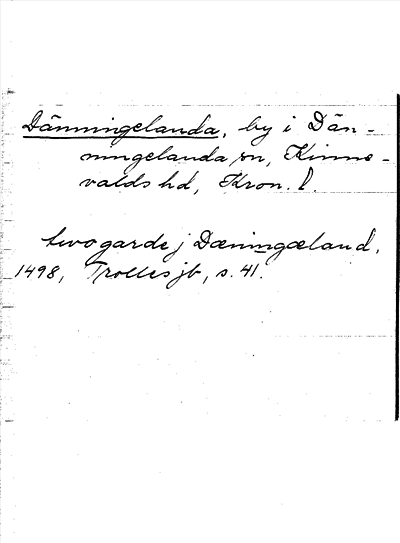 Dänningelanda, by i Dän-
ningelanda sn, Kinne-
valds hd, Kron. l.
twogarde j Dæningæland.
1498, Trolles jb, s. 41.